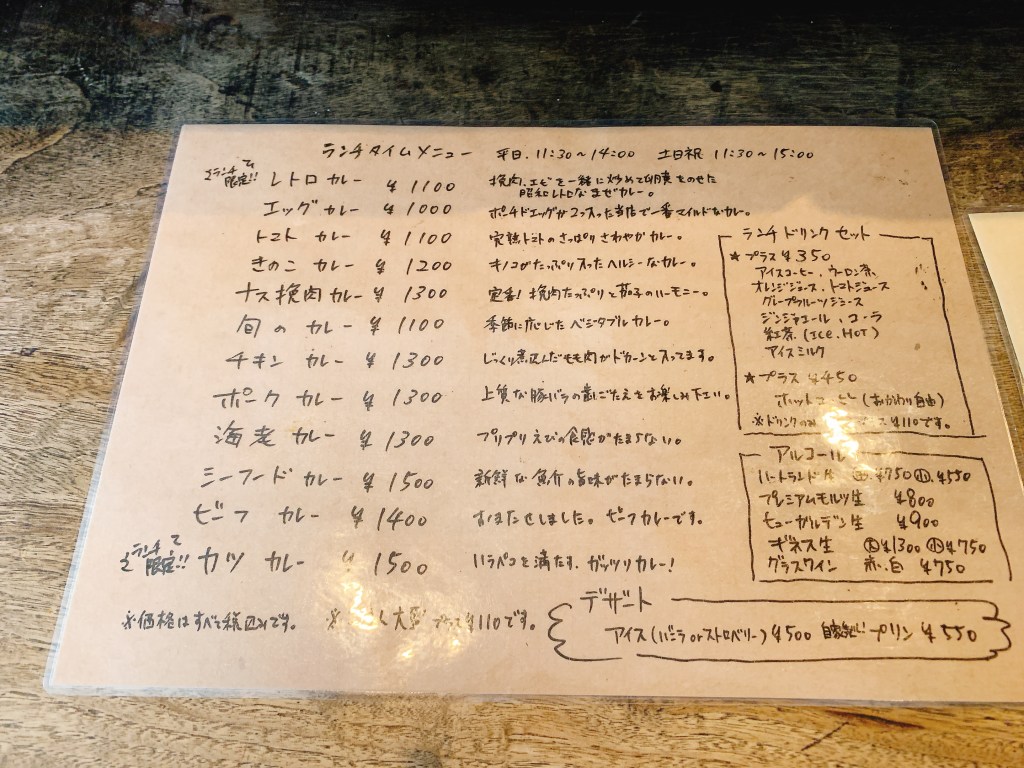 ランチタイムメニュー 平日. 11:30~14:00 土日祝 11:30~15:00
ランチ限定!! レトロカレー ¥1100 挽肉、エビを一緒に炒めて卵黄をのせた
昭和レトロなまぜカレー。
エッグカレー ¥1000 ポーチドエッグが2つ入った当店で一番マイルドなカレー。
トマト カレー ¥1100 完熟トマトのさっぱりさわやかカレー。
きのこ カレー ¥1200 キノコがたっぷり入ったヘルシーなカレー。
ナス挽肉カレー ¥1300 定番!挽肉たっぷりと茄子のハーモニー。
旬の カレー ¥1100 季節に応じたベジタブルカレー。
チキン カレー ¥1300 じっくり煮込んだモモ肉がドカーンと入ってます。
ポーク カレー ¥1300 上質な豚バラの歯ごたえをお楽しみ下さい。
海老 カレー ¥1300 プリプリえびの食感がたまらない。
シーフード カレー ¥1500 新鮮な魚介の旨味がたまらない。
ビーフ カレー ¥1400 おまたせしました。ビーフカレーです。
ランチ限定!! カツ カレー ¥1500 ハラペコを満たす、ガッツリカレー!
※価格はすべて税込みです。 ※ 大盛 プラス¥110です。
ランチドリンクセット
★プラス ¥350
アイスコーヒー、ウーロン茶、
オレンジジュース、トマトジュース
グレープフルーツジュース
ジンジャエール、コーラ
紅茶(ICE、HOT)
アイスミルク
★プラス ¥450
ホットコーヒー(おかわり自由)
※ドリンクのみ ¥110です。
アルコール
ハートランド生 ¥750 小 ¥550
プレミアムモルツ生 ¥800
ヒューガルデン生 ¥900
ギネス生 大¥1300 小¥750
グラスワイン 赤、白 ¥750
デザート
アイス(バニラorストロベリー) ¥500 自家製!! プリン ¥550